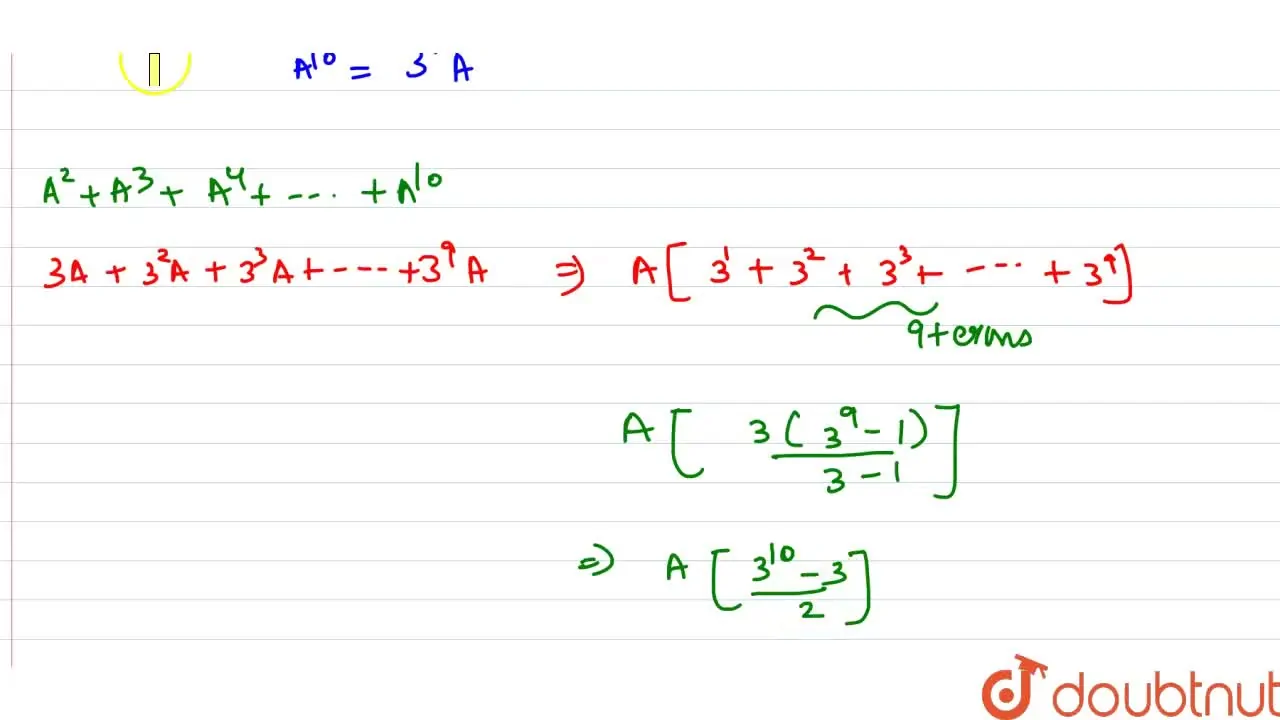 A¹⁰ = 3 A
A² + A³ + A⁴ + ---- + A¹⁰
3A + 3²A + 3³A + ---- + 3⁹A ⇒ A[3¹ + 3² + 3³ + ---- + 3⁹]
9 terms
A[3(3⁹ - 1)
3 - 1]
⇒ A[3¹⁰ - 3
2]
doubtnut